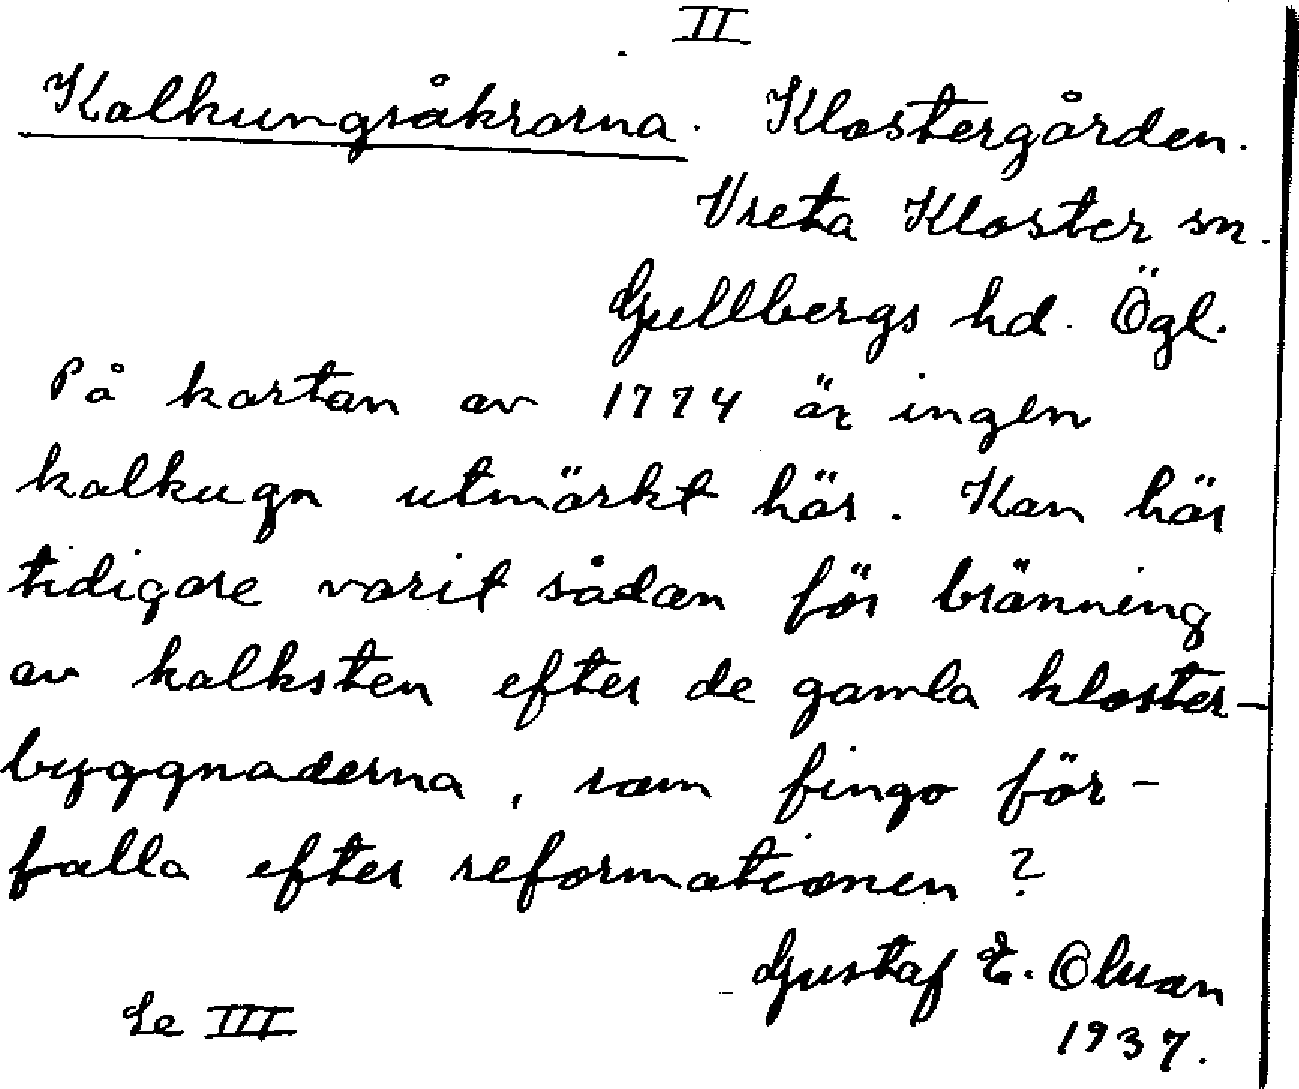 II
Kalkungsåkrarna. Klostergården.
Vreta Kloster sn.
Gullbergs hd. Ögl.
På kartan av 1774 är ingen
kalkugn utmärkt här. Kan här
tidigare varit sådan för bränning
av kalksten efter de gamla kloster-
byggnaderna, som fingo för-
falla efter reformationen?
Gustaf E. Olsson
Se III 1937.